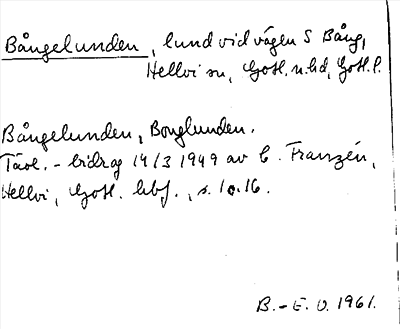 Bångelunden, lund vid vägen S Bång,
Hellvi sn, Gotl. n. hd, Gotl. l.
Bångelunden, Bonglunden.
Tävl.-bidrag 14/3 1949 av C. Franzén,
Hellvi, Gotl. hbf., s. 1 o. 16.
B.-E. O. 1961.